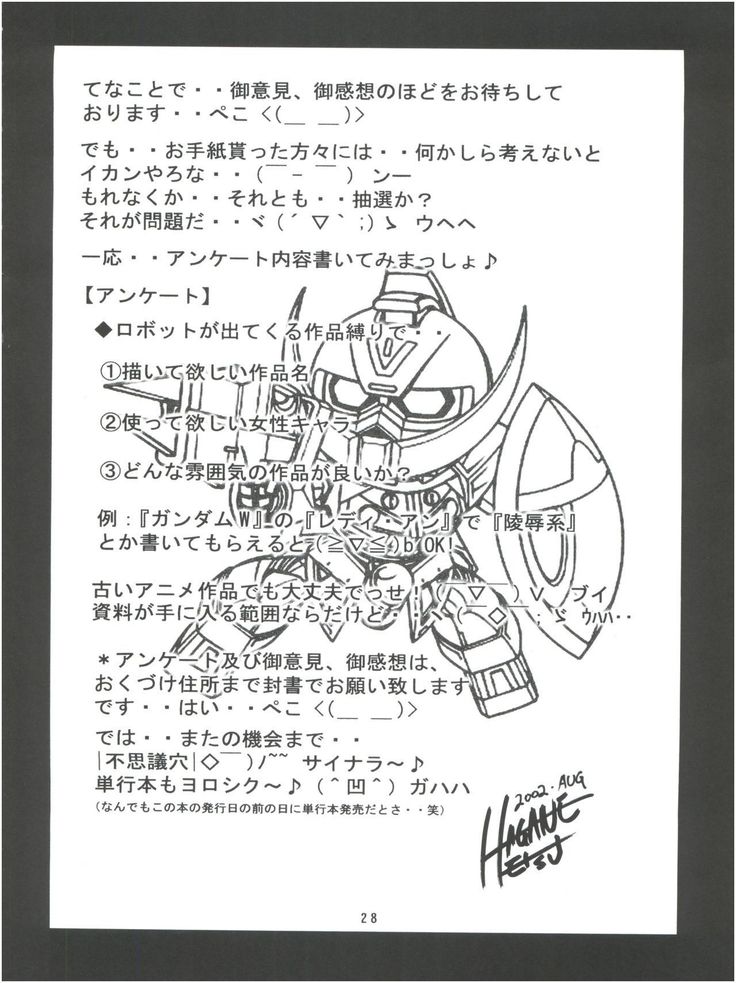 てなことで・・御意見、御感想のほどをお待ちして
おります・・ぺこ <(＿ ＿)>
でも・・お手紙貰った方々には・・何かしら考えないと
イカンやろな・・(￣－￣) ンー
もれなくか・・それとも・・抽選か？
それが問題だ・・ヾ(´▽｀;)ゝ ウヘヘ
一応・・アンケート内容書いてみまっしょ♪
【アンケート】
◆ロボットが出てくる作品縛りで・・
①描いて欲しい作品名
②使って欲しい女性キャラ
③どんな雰囲気の作品が良いか？
例：『ガンダムW』の『レディ・アン』で『陵辱系』
とか書いてもらえると(≧▽≦)b OK!
古いアニメ作品でも大丈夫でっせ！(￣▽￣)Ｖ ブイ
資料が手に入る範囲ならだけど・・ヽ(￣◇￣;ゞ ｳﾊﾊ・・
＊アンケート及び御意見、御感想は、
おくづけ住所まで封書でお願い致します
です・・はい・・ぺこ <(＿ ＿)>
では・・またの機会まで・・
|不思議穴|◇￣)ﾉ~~ サイナラ～♪
単行本もヨロシク～♪(＾凹＾)ガハハ
(なんでもこの本の発行日の前の日に単行本発売だとさ・・笑)
2002・AUG
HAGANE
TETSU
28